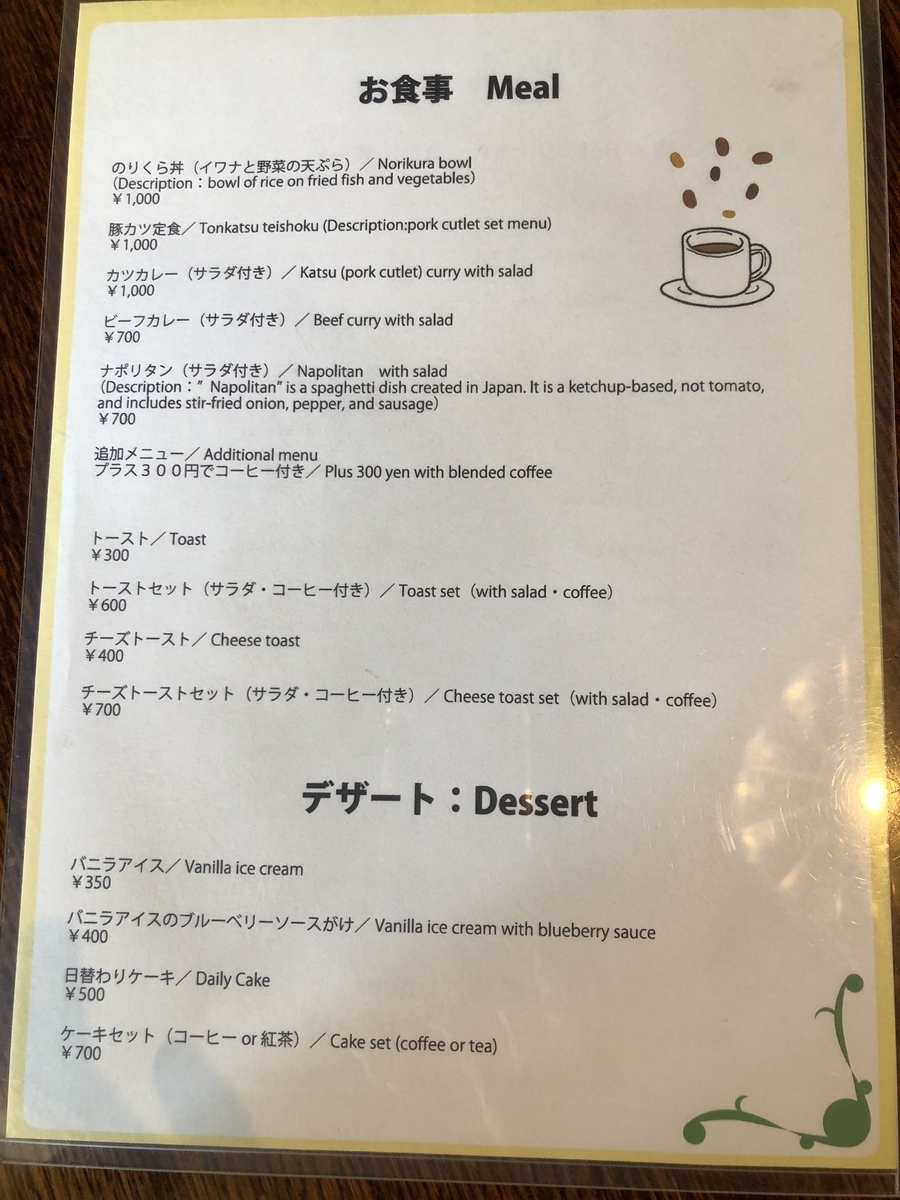 お食事　Meal
のりくら丼（イワナと野菜の天ぷら）／ Norikura bowl
（Description：bowl of rice on fried fish and vegetables）
￥1,000
豚カツ定食／ Tonkatsu teishoku (Description:pork cutlet set menu)
￥1,000
カツカレー（サラダ付き）／ Katsu (pork cutlet) curry with salad
￥1,000
ビーフカレー（サラダ付き）／ Beef curry with salad
￥700
ナポリタン（サラダ付き）／ Napolitan　with salad
（Description：” Napolitan” is a spaghetti dish created in Japan. It is a ketchup-based, not tomato,
and includes stir-fried onion, pepper, and sausage）
￥700
追加メニュー／ Additional menu
プラス３００円でコーヒー付き／ Plus 300 yen with blended coffee
トースト／ Toast
￥300
トーストセット（サラダ・コーヒー付き）／ Toast set（with salad・coffee）
￥600
チーズトースト／ Cheese toast
￥400
チーズトーストセット（サラダ・コーヒー付き）／ Cheese toast set（with salad・coffee）
￥700
デザート：Dessert
バニラアイス／ Vanilla ice cream
￥350
バニラアイスのブルーベリーソースがけ／ Vanilla ice cream with blueberry sauce
￥400
日替わりケーキ／ Daily Cake
￥500
ケーキセット（コーヒー or 紅茶）／ Cake set (coffee or tea)
￥700